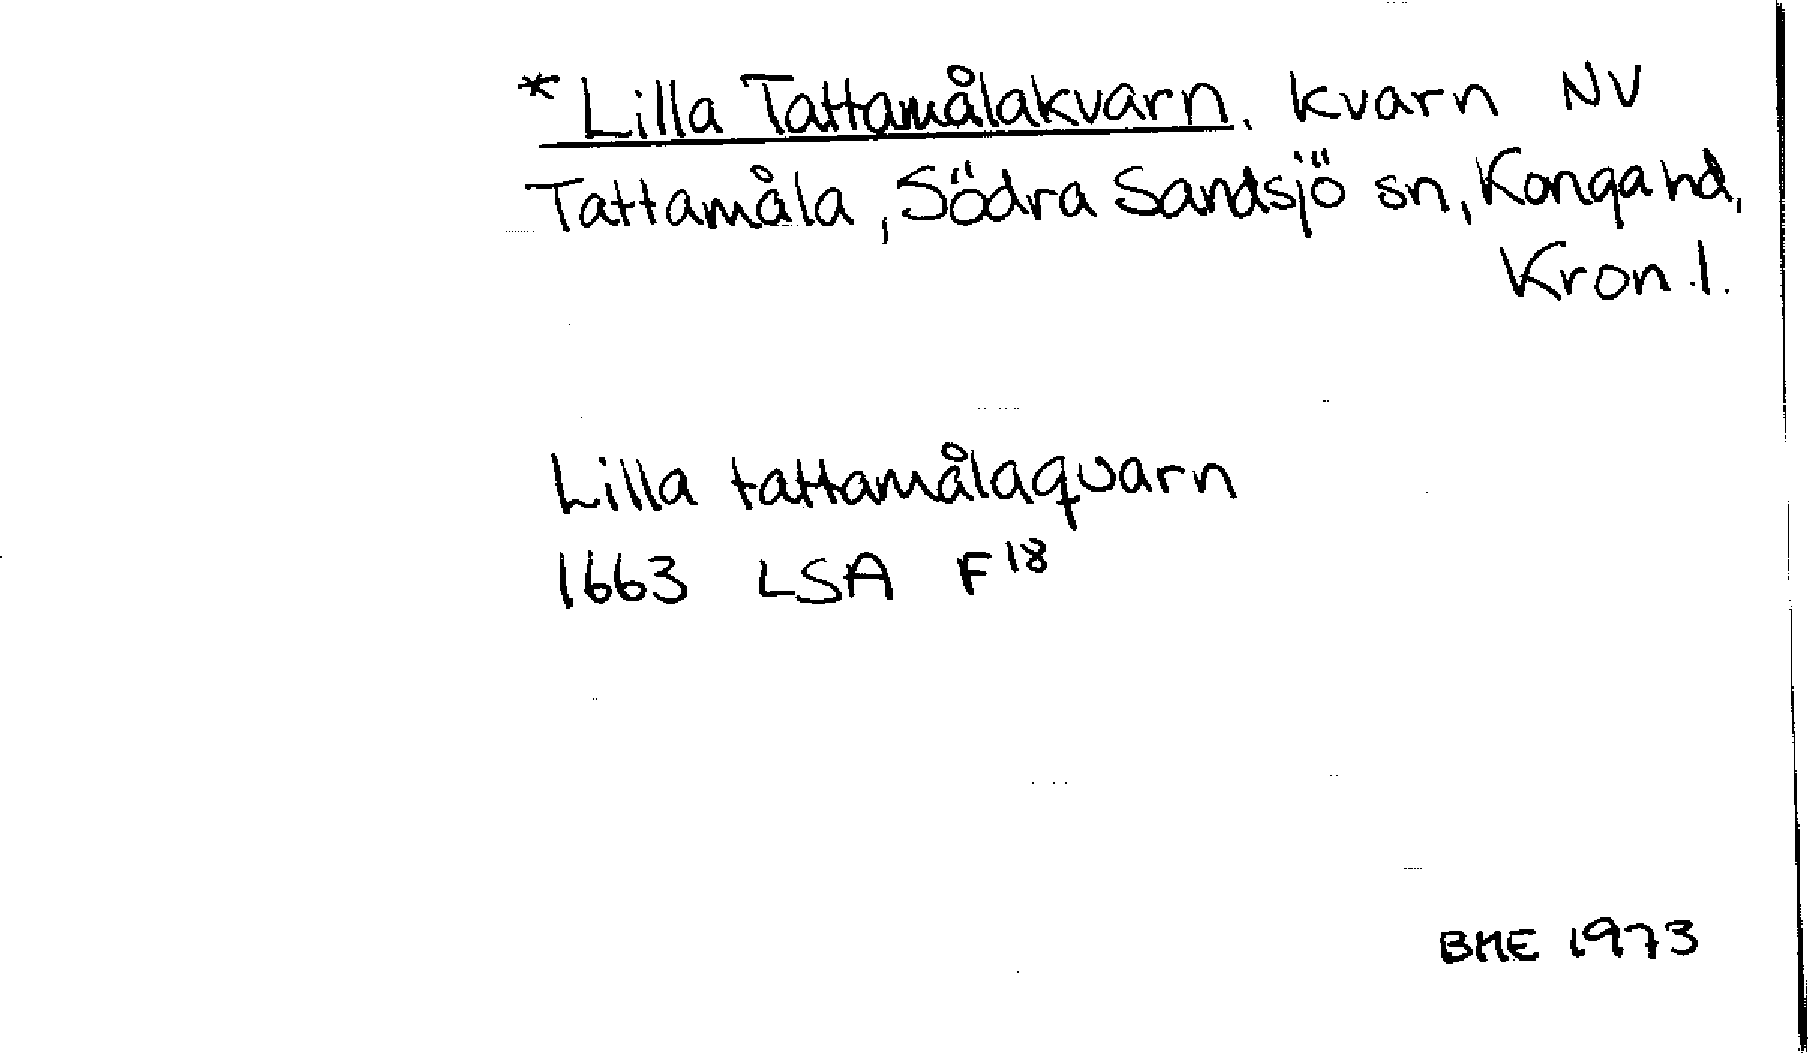 * Lilla Tattamålakvarn. kvarn NV
Tattamåla, Södra Sandsjö sn, Konga hd,
Kron.l.
Lilla tattamålaqvarn
1663 LSA F18
BME 1973